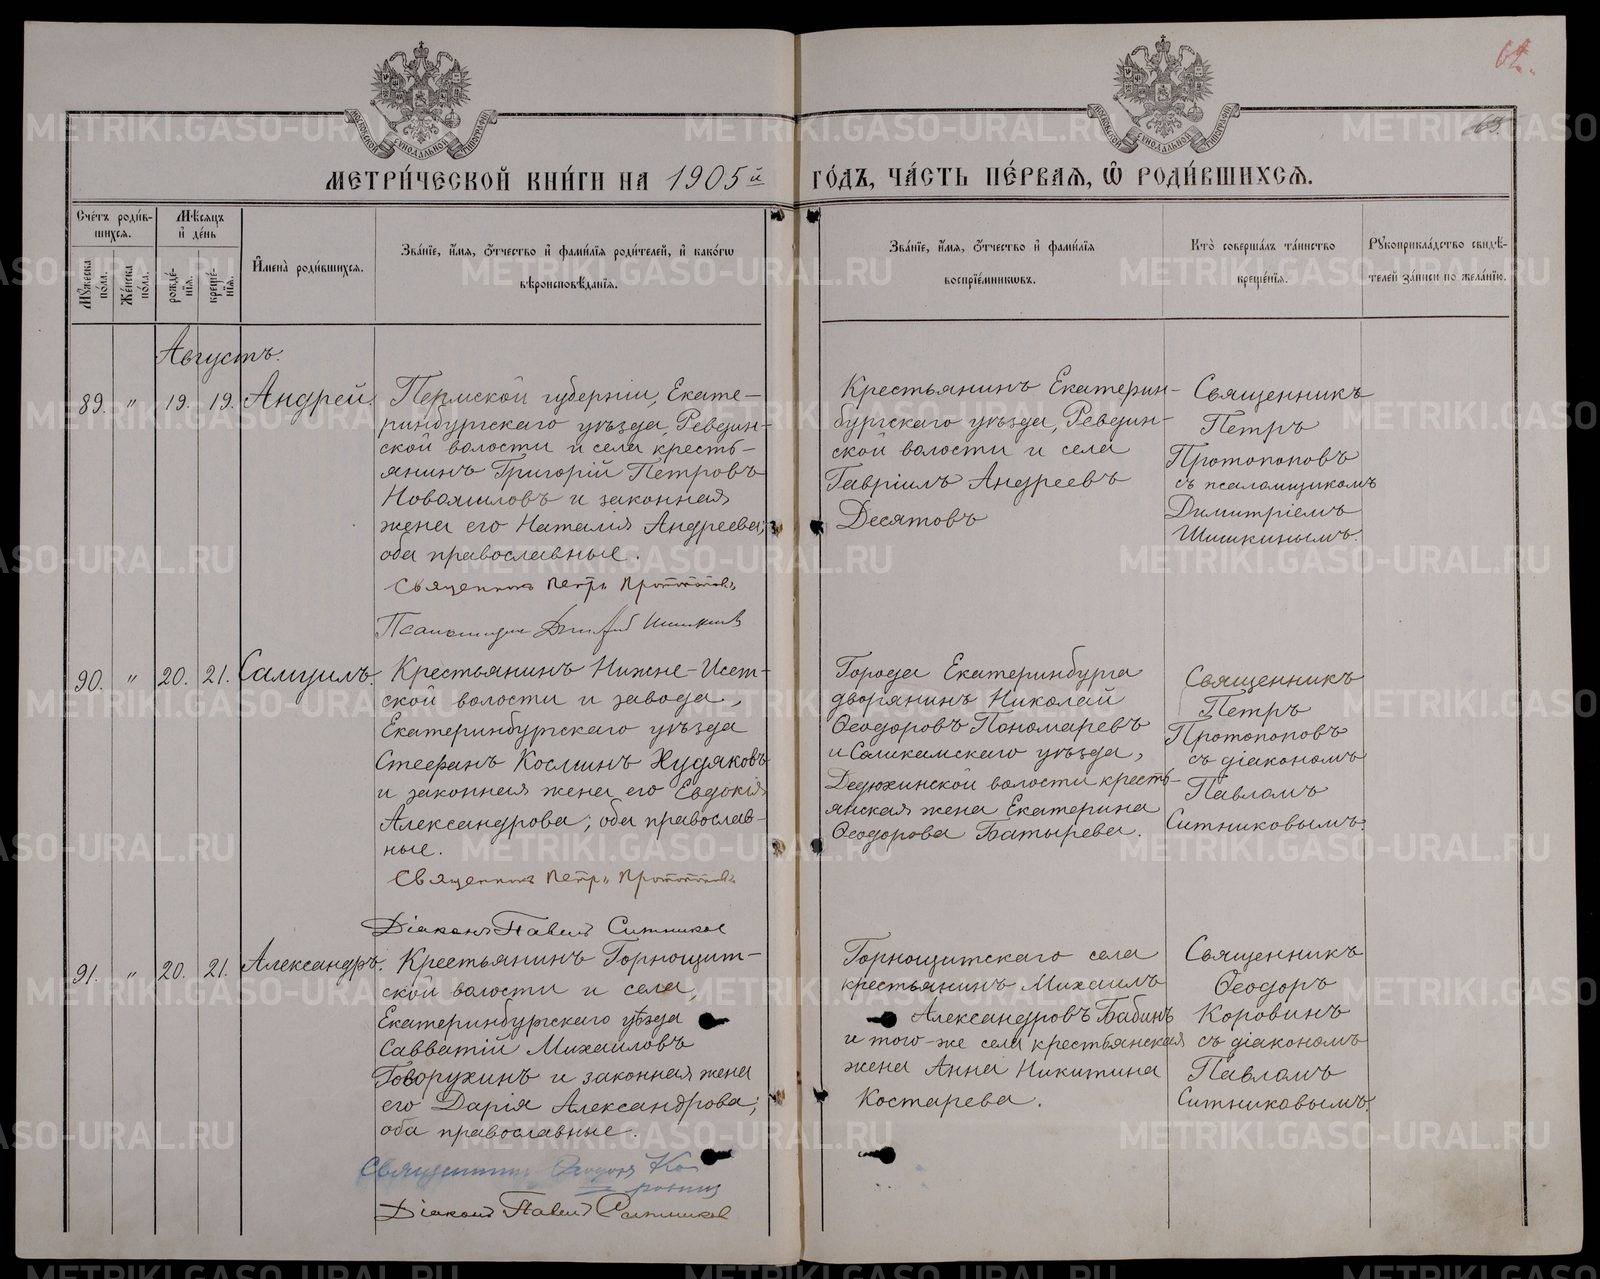 62.
63.
МЕТРИ́ЧЕСКОЙ КНИ́ГИ НА 1905й ГО́ДЪ, ЧА́СТЬ ПЕ́РВАѦ, Ѡ҆ РОДИ́ВШИХСѦ.
Сче́тъ роди́в-
шихсѧ.
Мꙋ́жеска по́ла.
Же́нска по́ла.
Мѣ́сѧцъ
и҆ де́нь
рожде́-
нїѧ.
креще́-
нїѧ.
И҆мена̀ роди́вшихсѧ.
Зва́нїе, и҆́мѧ, ѻ҆́тчество и҆ фами́лїѧ роди́телей, и҆ како́гѡ
вѣроисповѣ́данїѧ.
Зва́нїе, и҆́мѧ, ѻ҆́тчество и҆ фами́лїѧ
воспрїе́мникѡвъ.
Кто̀ соверша́лъ та́инство
креще́нїѧ.
Рꙋкоприкла́дство свидѣ́-
телей за́писи по жела́нїю.
Августъ.
89. " 19. 19. Андрей.
Пермской губерніи, Екате-
ринбургскаго уѣзда, Ревдин-
ской волости и села кресть-
янинъ Григорій Петровъ
Новоашиловъ и законная
жена его Наталія Андреева;
оба православные.
Священникъ Петръ Протопоповъ
Псаломщик Димитрій Шишкинъ
Крестьянинъ Екатерин-
бургскаго уѣзда, Ревдин-
ской волости и села
Гавріилъ Андреевъ
Десятовъ
Священникъ
Петръ
Протопоповъ
съ псаломщикомъ
Димитріемъ
Шишкинымъ.
90. " 20. 21. Самуилъ.
Крестьянинъ Нижне-Исет-
ской волости и завода,
Екатеринбургскаго уѣзда
Стефанъ Косминъ Худяковъ
и законная жена его Евдокія
Александрова; оба православ-
ные.
Священникъ Петръ Протопоповъ
Діаконъ Павелъ Ситниковъ
Города Екатеринбурга
дворянинъ Николай
Ѳеодоровъ Пономаревъ
и Соликамскаго уѣзда,
Дедюхинской волости кресть-
янская жена Екатерина
Ѳеодорова Батырева.
Священникъ
Петръ
Протопоповъ
съ діакономъ
Павломъ
Ситниковымъ.
91. " 20. 21. Александръ.
Крестьянинъ Горнощит-
ской волости и села,
Екатеринбургскаго уѣзда
Савватій Михаиловъ
Говорухинъ и законная жена
его Дарія Александрова;
оба православные.
Священникъ Ѳеодоръ Ко-
ровинъ
Діаконъ Павелъ Ситниковъ
Горнощитскаго села
крестьянинъ Михаилъ
Александровъ Бабинъ
и того-же села крестьянская
жена Анна Никитина
Костарева.
Священникъ
Ѳеодоръ
Коровинъ
съ діакономъ
Павломъ
Ситниковымъ.
METRIKI.GASO-URAL.RU